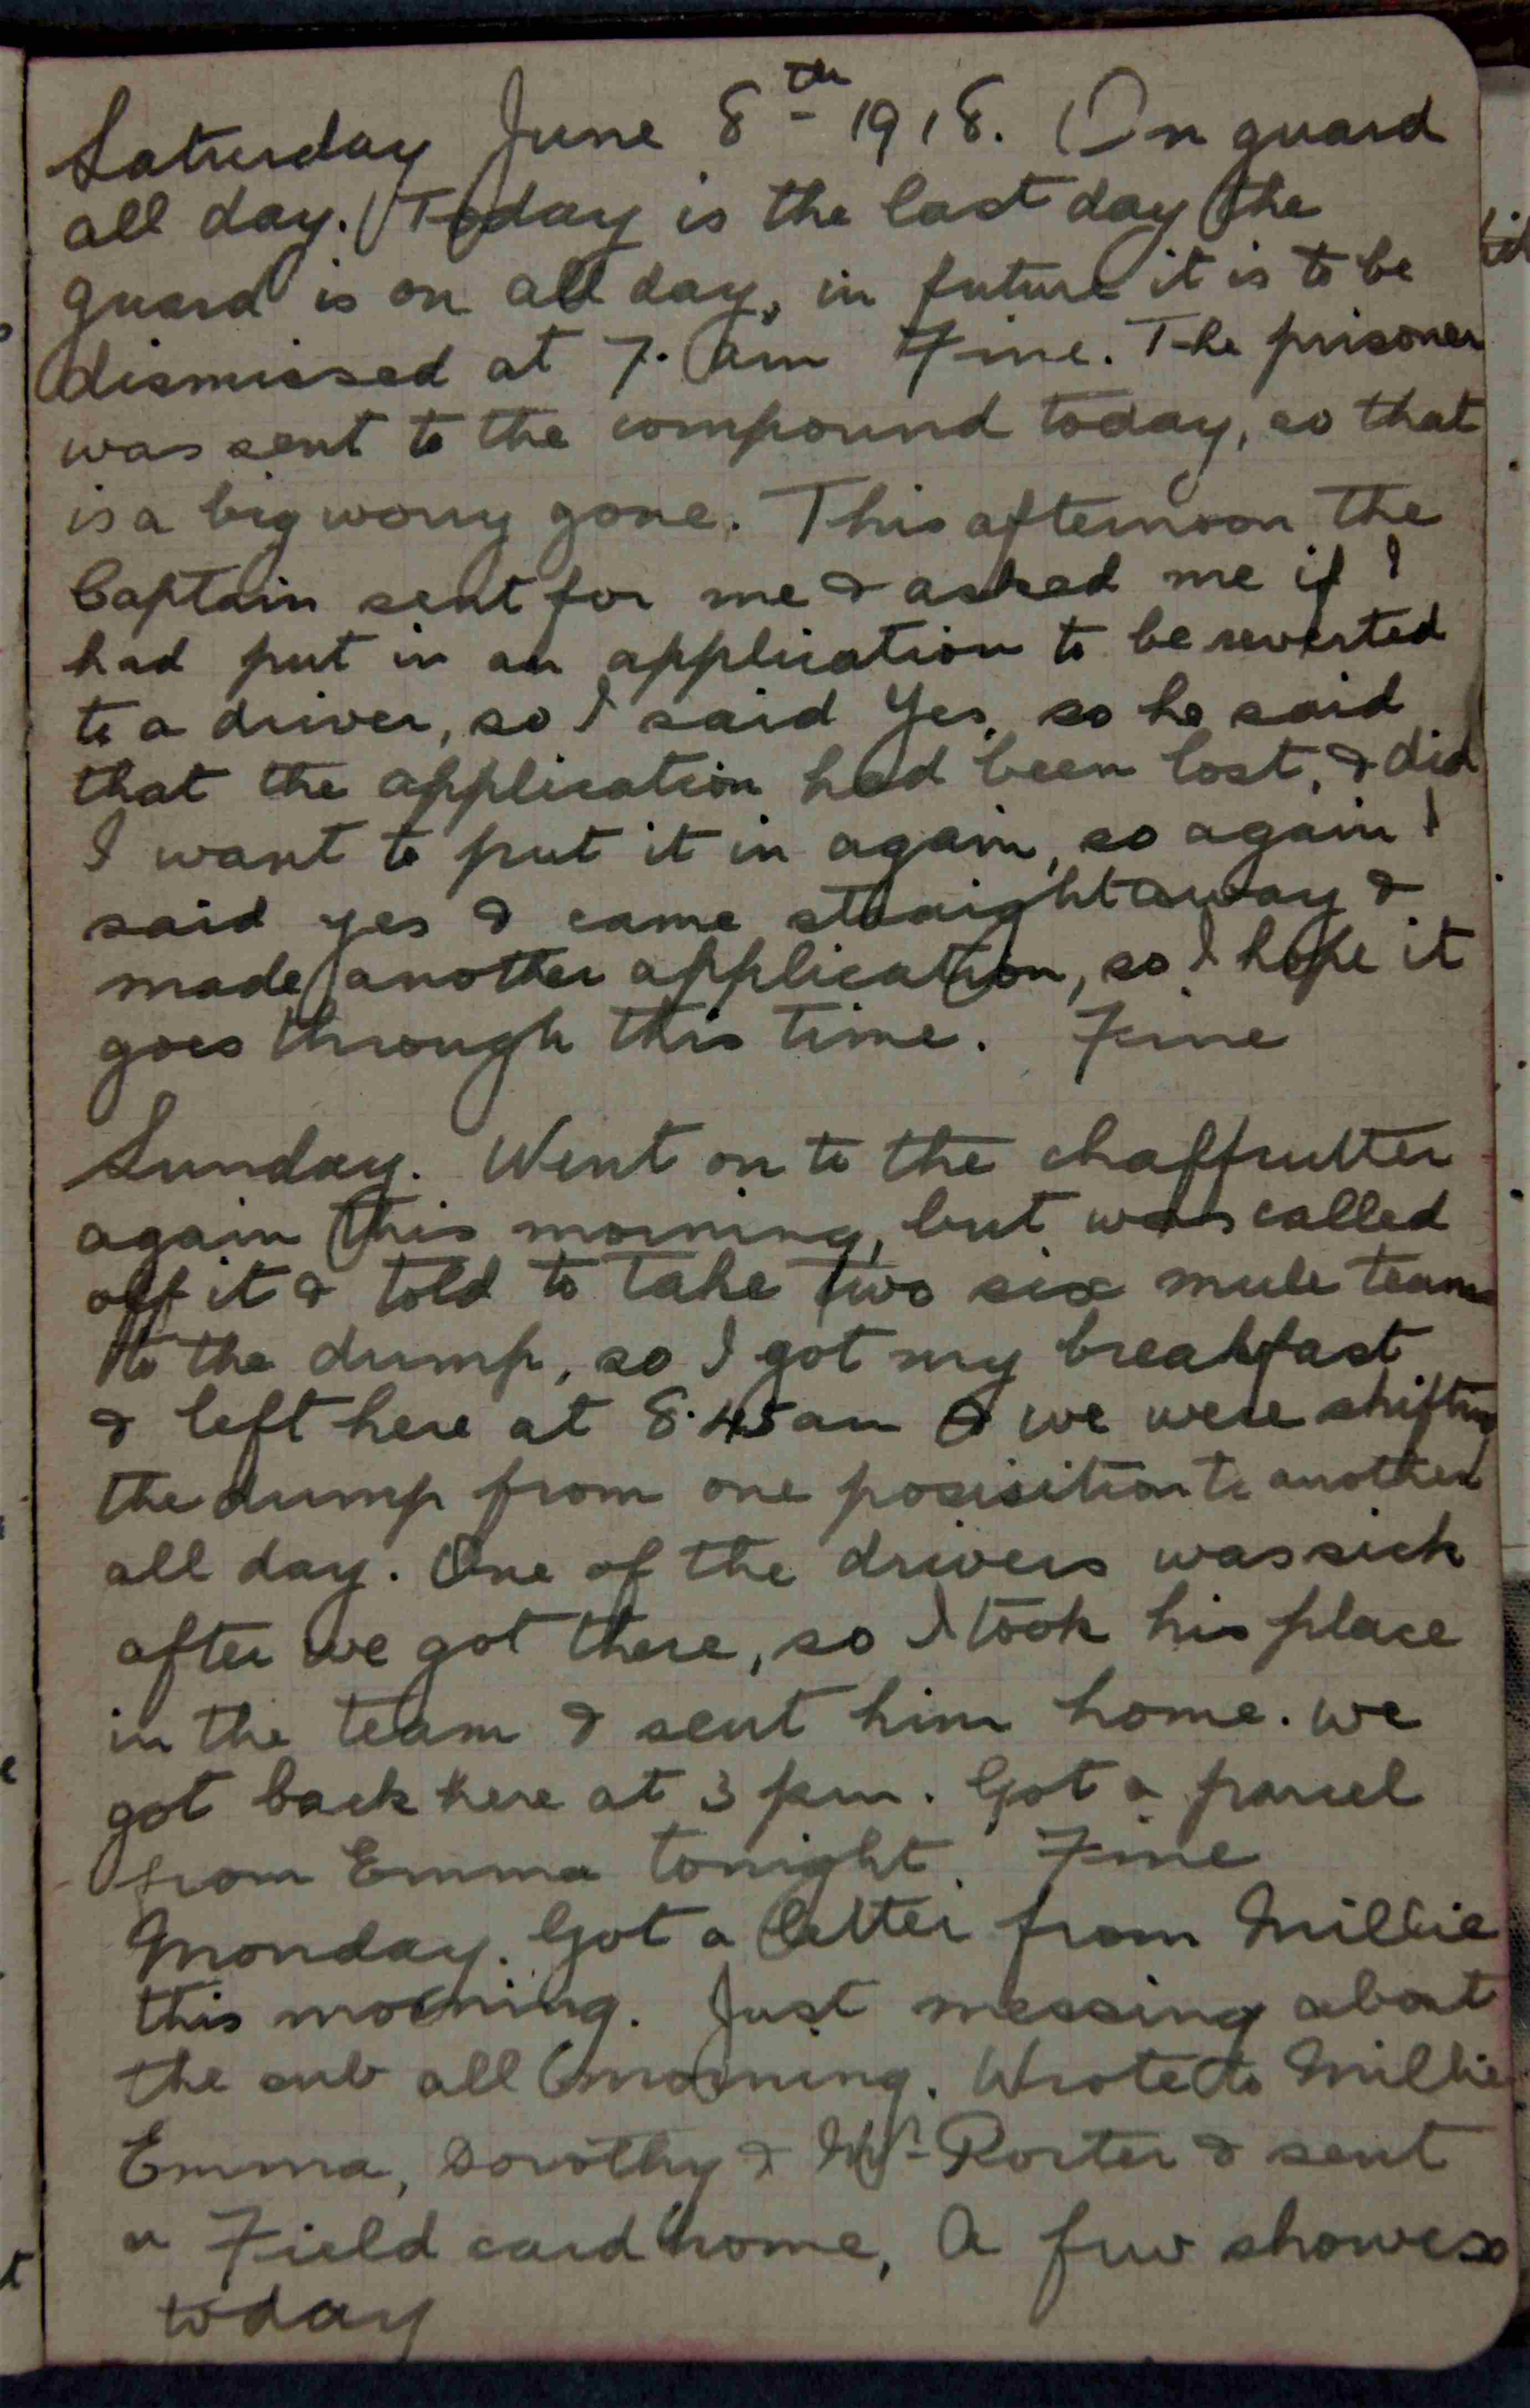 Saturday June 8th 1918. On guard
all day. Today is the last day the
guard is on all day, in future it is to be
dismissed at 7. am Fine. The prisoner
was sent to the compound today, so that
is a big worry gone. This afternoon the
Captain sent for me & asked me if I
had put in an application to be reverted
to a driver, so I said Yes, so he said
that the application had been lost, & did
I want to put it in again, so again I
said yes & came straightaway &
made another application, so I hope it
goes through this time. Fine
Sunday. Went on to the chaffcutter
again this morning, but was called
off it & told to take two six mule teams
to the dump, so I got my breakfast
& left here at 8.45 am & we were shifting
the dump from one posisition to another
all day. One of the drivers was sick
after we got there, so I took his place
in the team & sent him home. we
got back here at 3 pm. Got a parcel
from Emma tonight. Fine
Monday. Got a letter from Millie
this morning. Just messing about
the sub all morning. Wrote to Millie
Emma, Dorothy & Porter & sent
a Field card home, A few showers
today